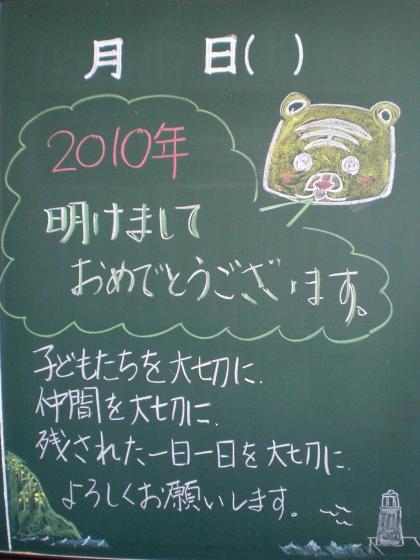 月 日( )
2010年
明けまして
おめでとうございます。
子どもたちを大切に.
仲間を大切に.
残された一日一日を大切に.
よろしくお願いします。